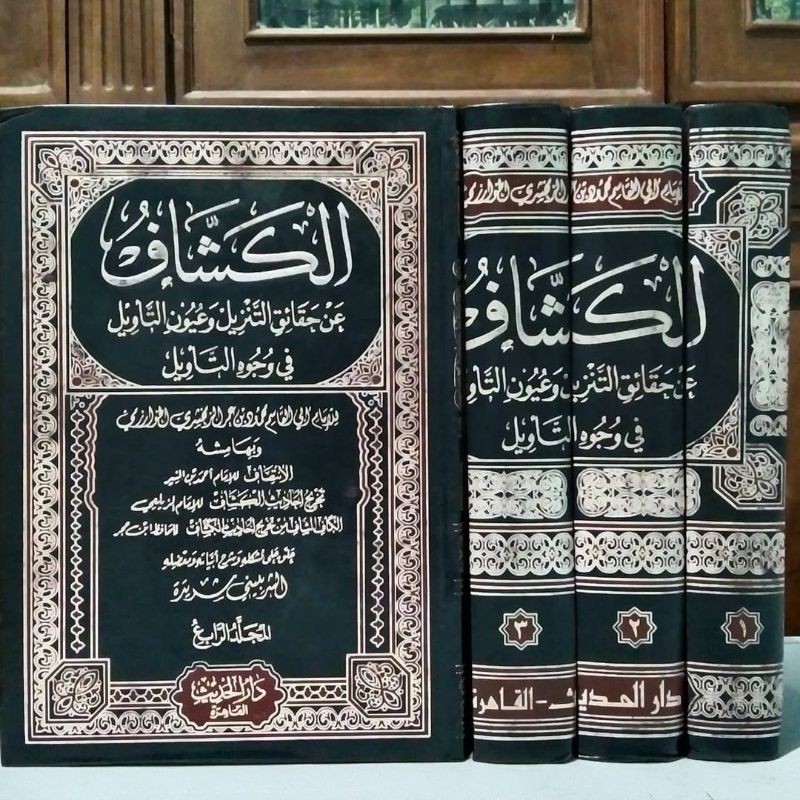 الكَشَّافُ
عَنْ حَقَائِقِ التَّنْزِيلِ وَعُيُونِ التَّأْوِيلِ
فِي وُجُوهِ التَّأْوِيلِ
للإمام أبي القاسم محمود بن عمر الزمخشري الخوارزمي
وبهامشه
الانتصاف للإمام أحمد بن المنير
تخريج أحاديث الكشاف للإمام الزيلعي
الكاف الشاف من تخريج أحاديث الكشاف للحافظ ابن حجر
الشربيني شريدة
المجلد الرابع
دار الحديث
القاهرة
للإمام أبي القاسم محمود بن عمر الزمخشري الخوارزمي
الكَشَّافُ
عَنْ حَقَائِقِ التَّنْزِيلِ وَعُيُونِ التَّأْوِيلِ
فِي وُجُوهِ التَّأْوِيلِ
١
٢
٣
دار الحديث - القاهرة